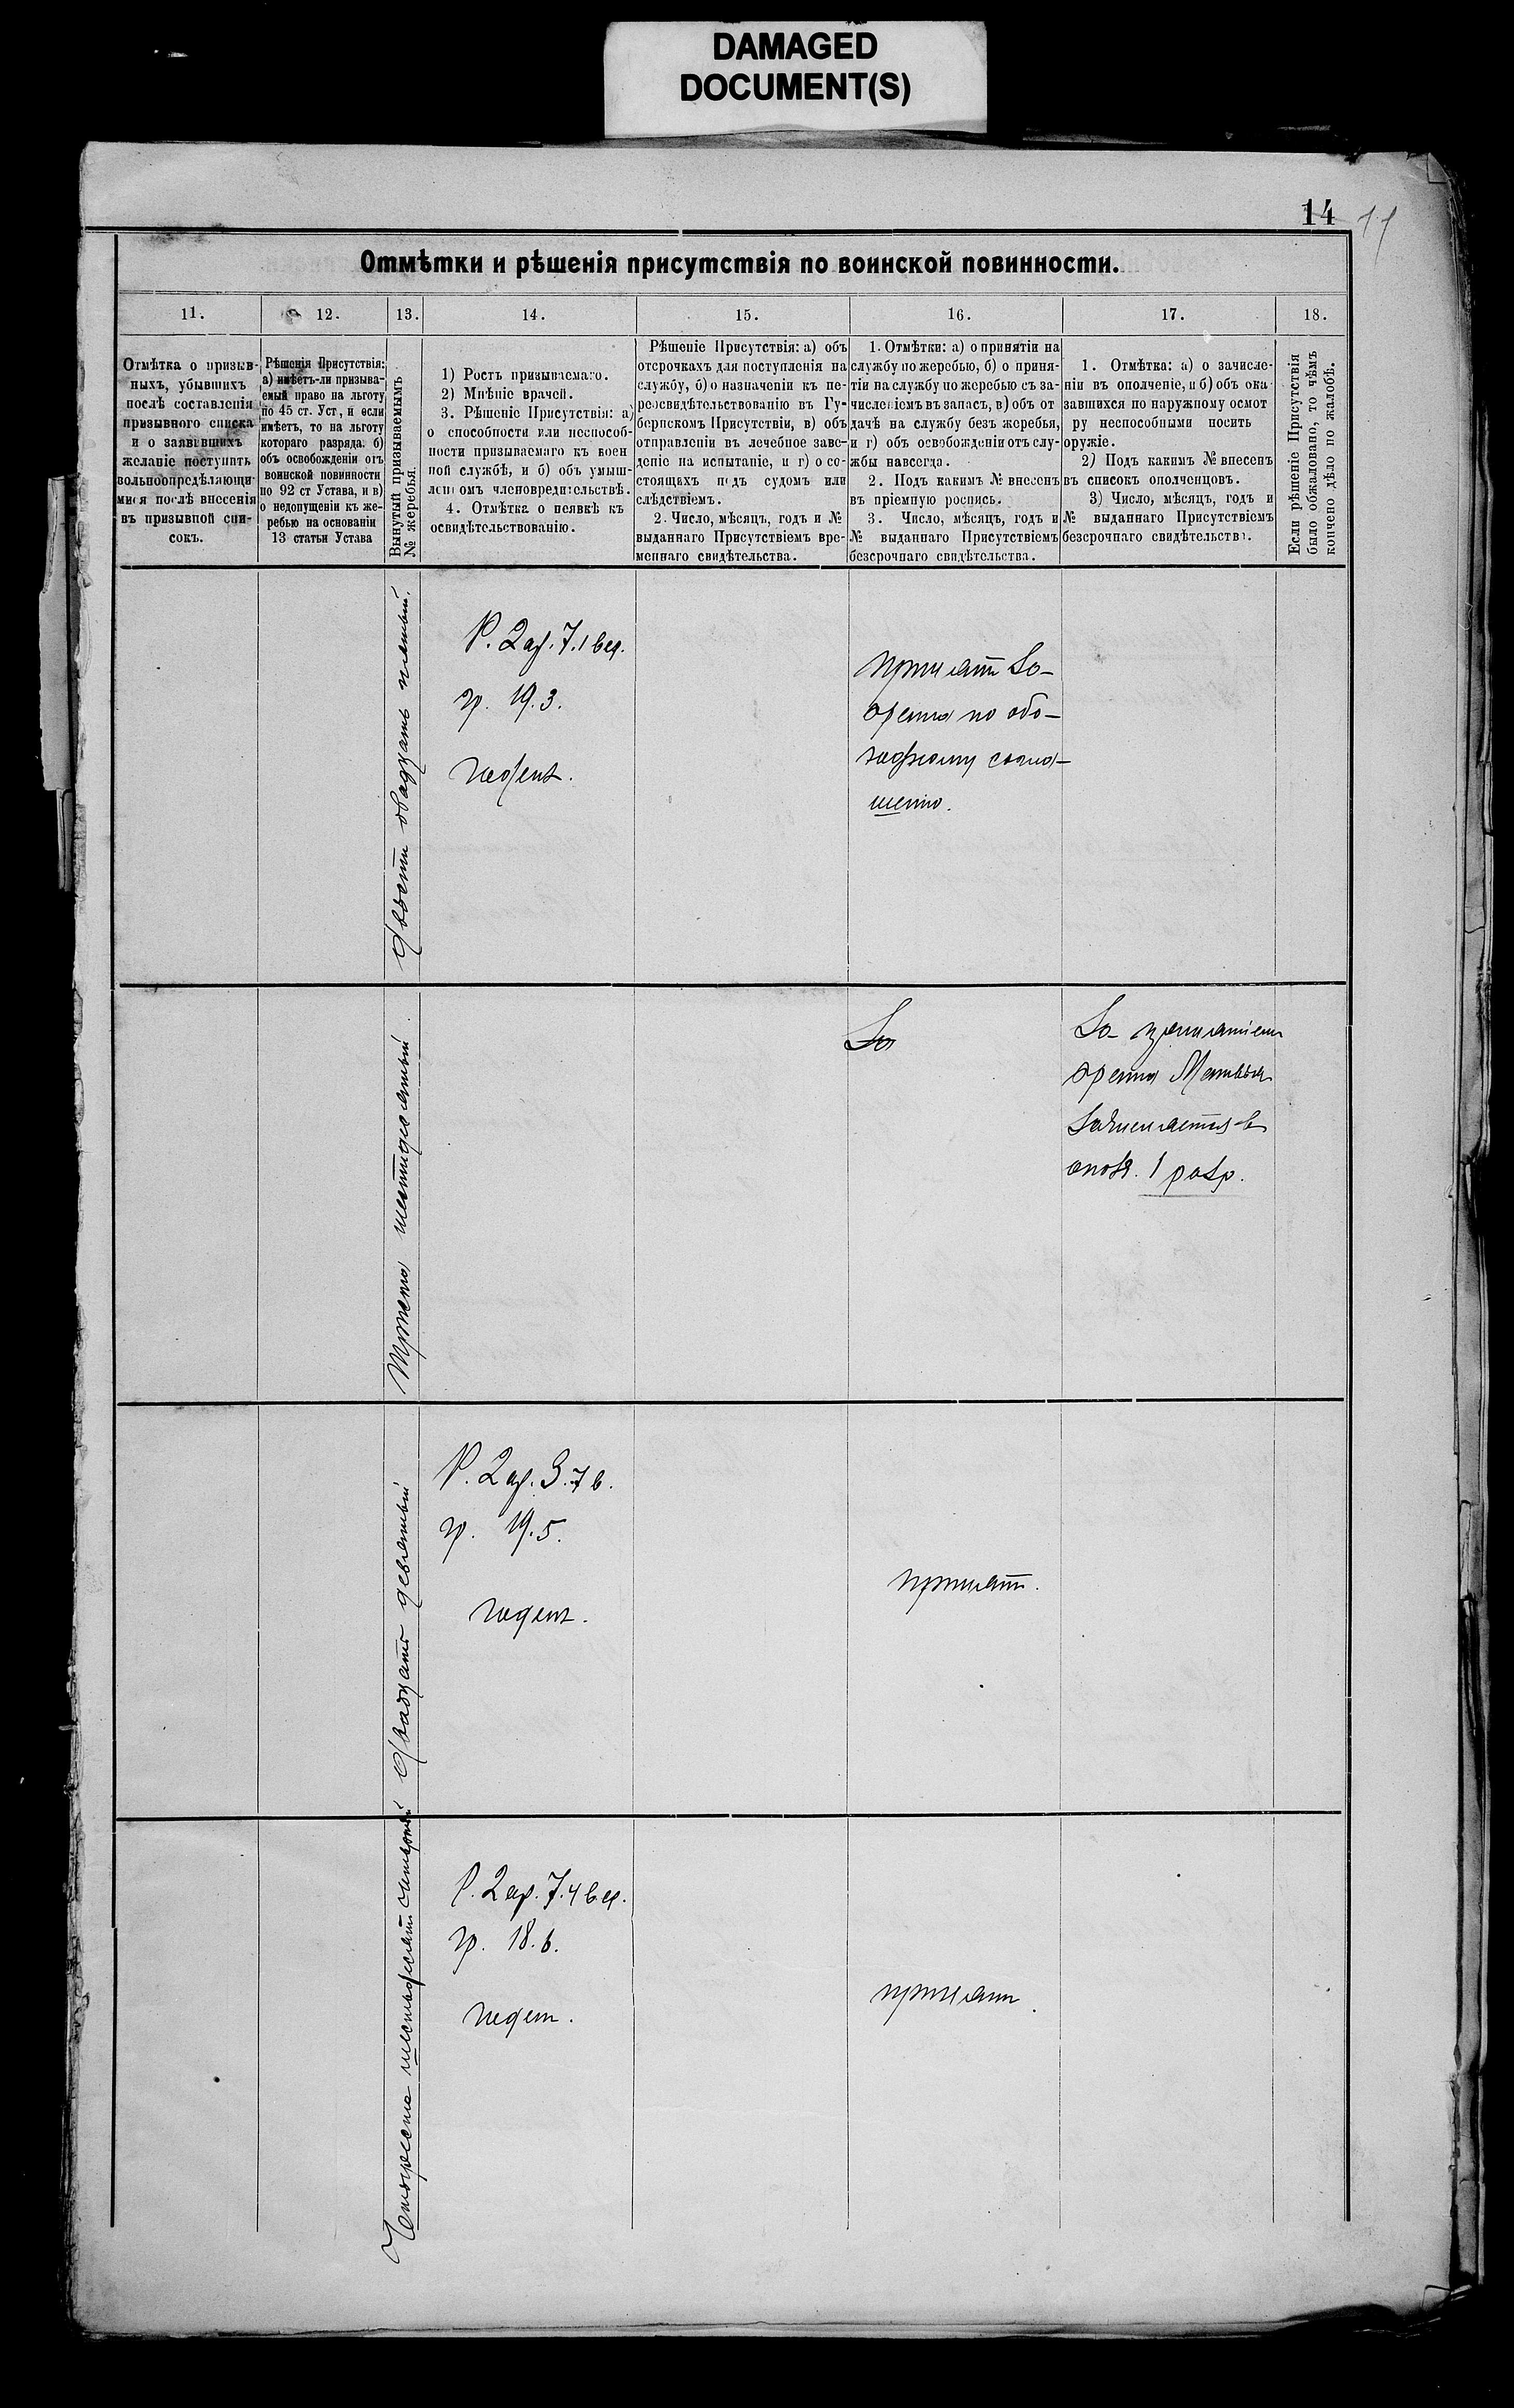 DAMAGED
DOCUMENT(S)
14
11
Отмѣтки и рѣшенія присутствія по воинской повинности.
11.
12.
13.
14.
15.
16.
17.
18.
Отмѣтка о призыв-
ныхъ, убывшихъ
послѣ составленія
призывного списка
и о заявившихъ
желаніе поступить
вольноопредѣляющи-
мися послѣ внесенія
въ призывной спи-
сокъ.
Рѣшенія Присутствія:
а) имѣетъ-ли призыва-
емый право на льготу
по 45 ст. Уст., и если
имѣетъ, то на льготу
котораго разряда. б)
объ освобожденіи отъ
воинской повинности
по 92 ст Устава, и в)
о недопущеніи къ же-
ребью на основаніи
13 статьи Устава
Вынутый призываемымъ
№ жеребья.
1) Ростъ призываемаго.
2) Мнѣніе врачей.
3. Рѣшеніе Присутствія: а)
о способности или неспособ-
ности призываемаго къ воен
ной службѣ, и б) объ умыш-
ленномъ членовредительствѣ.
4. Отмѣтка о неявкѣ къ
освидѣтельствованію.
Рѣшеніе Присутствія: а) объ
отсрочкахъ для поступленія на
службу, б) о назначеніи къ пе-
реосвидѣтельствованію въ Гу-
бернскомъ Присутствіи, в) объ
отправленіи въ лечебное заве-
деніе на испытаніе, и г) о со-
стоящихъ подъ судомъ или
слѣдствіемъ.
2. Число, мѣсяцъ, годъ и №
выданнаго Присутствіемъ вре-
меннаго свидѣтельства.
1. Отмѣтки: а) о принятіи на
службу по жеребью, б) о приня-
тіи на службу по жеребью съ за-
численіемъ въ запасъ, в) объ от
дачѣ на службу безъ жеребья,
и г) объ освобожденіи отъ слу-
жбы навсегда.
2. Подъ какимъ № внесенъ
въ пріемную роспись.
3. Число, мѣсяцъ, годъ и
№ выданнаго Присутствіемъ
безсрочнаго свидѣтельства.
1. Отмѣтка: а) о зачисле-
ніи въ ополченіе, и б) объ ока
завшихся по наружному осмот
ру неспособными носить
оружіе.
2) Подъ какимъ № внесенъ
въ списокъ ополченцовъ.
3) Число, мѣсяцъ, годъ и
№ выданнаго Присутствіемъ
безсрочнаго свидѣтельства.
Если рѣшеніе Присутствія
было обжаловано, то чѣмъ
кончено дѣло по жалобѣ.
Двѣсти двадцать пятый.
Р. 2 ар. 7.1 вер.
гр. 19.3.
годенъ.
принятъ за
брата по обо-
юдному согла-
шенію.
Триста шестидесятый
За
За принятіемъ
брата Матвѣя
зачисляется въ
ополч. 1 разр.
Двадцать девятый
Р. 2 ар. 3.7 в.
гр. 19.5.
годенъ.
принятъ.
Четыреста шестьдесятъ четвертый
Р. 2 ар. 7.4 вер.
гр. 18.6.
годен.
принятъ.